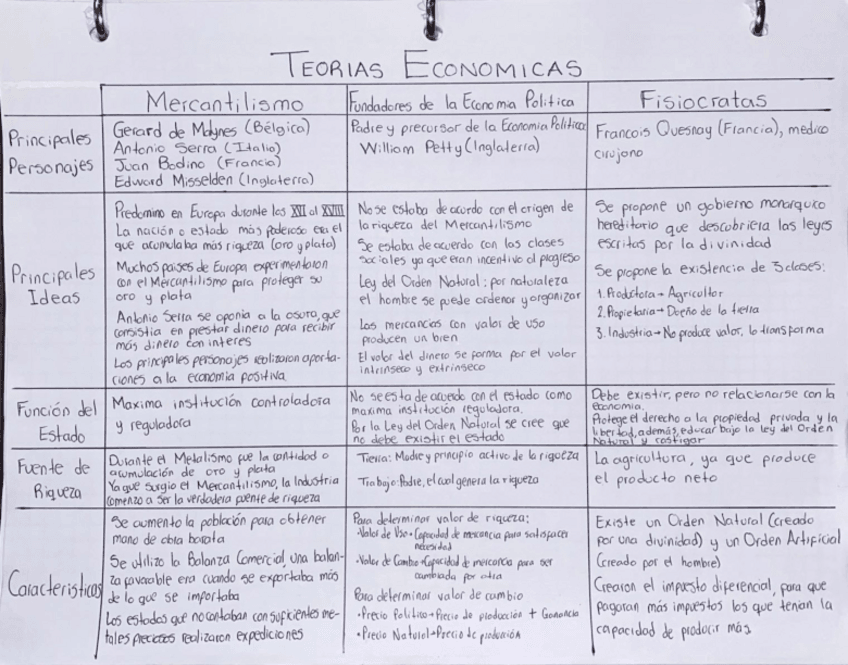 TEORIAS ECONOMICAS
Mercantilismo
Fundadores de la Economia Politica
Fisiocratas
Principales
Personajes
Gerard de Malynes (Bélgica)
Antonio Serra (Italia)
Juan Bodino (Francia)
Edward Misselden (Inglaterra)
Padre y precursor de la Economia Politica
William Petty (Inglaterra)
Francois Quesnay (Francia), medico
cirujano
Principales
Ideas
Predomino en Europa durante los XVI al XVIII
La nación o estado más poderoso era el
que acumulaba más riqueza (oro y plata)
Muchos paises de Europa experimentaron
con el Mercantilismo para proteger su
oro y plata
Antonio Serra se oponia a la osura, que
consistia en prestar dinero para recibir
más dinero con interes
Los principales personajes realizaron aporta-
ciones a la economia positiva.
No se estaba de acuerdo con el origen de
la riqueza del Mercantilismo
Se estaba de acuerdo con las clases
sociales ya que eran incentivo al progreso
Ley del Orden Natural: por naturaleza
el hombre se puede ordenar y organizar
Las mercancias con valor de uso
producen un bien
El valor del dinero se forma por el valor
intrinseco y extrinseco
Se propone un gobierno monarquico
hereditario que descubriera las leyes
escritas por la divinidad
Se propone la existencia de 3 clases:
1. Productora → Agricultor
2. Propietaria → Dueño de la tierra
3. Industria → No produce valor, lo transforma
Función del
Estado
Maxima institución controladora
y reguladora
No se esta de acuerdo con el estado como
maxima institución reguladora.
Por la Ley del Orden Natural se cree que
no debe existir el estado
Debe existir, pero no relacionarse con la
economia.
Protege el derecho a la propiedad privada y la
libertad, además, educar bajo la ley del Orden
Natural y castigar
Fuente de
Riqueza
Durante el Metalismo fue la cantidad o
acumulación de oro y plata
Ya que surgio el Mercantilismo, la Industria
comenzo a ser la verdadera fuente de riqueza
Tierra: Madre y principio activo de la riqueza
Trabajo: Padre, el cual genera la riqueza
La agricultura, ya que produce
el producto neto
Caracteristicas
Se aumento la población para obtener
mano de obra barata
Se utilizo la Balanza Comercial, una balan-
za favorable era cuando se exportaba más
de lo que se importaba
Los estados que no contaban con suficientes me-
tales preciosos realizaron expediciones
Para determinar valor de riqueza:
·Valor de Uso → Capacidad de mercancia para satisfacer
necesidad
·Valor de Cambio → Capacidad de mercancia para ser
cambiada por otra
Para determinar valor de cambio
·Precio Politico → Precio de producción + Ganancia
·Precio Natural → Precio de producción
Existe un Orden Natural (creado
por una divinidad) y un Orden Artificial
(creado por el hombre)
Crearon el impuesto diferencial, para que
pagaran más impuestos los que tenian la
capacidad de producir más.